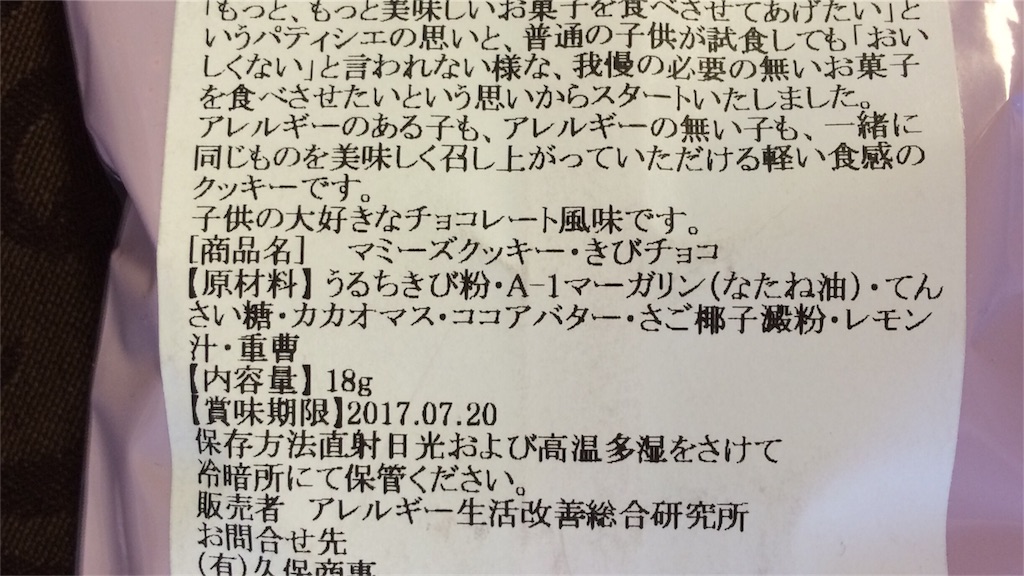 「もっと、もっと美味しいお菓子を食べさせてあげたい」と
いうパティシエの思いと、普通の子供が試食しても「おい
しくない」と言われない様な、我慢の必要の無いお菓子
を食べさせたいという思いからスタートいたしました。
アレルギーのある子も、アレルギーの無い子も、一緒に
同じものを美味しく召し上がっていただける軽い食感の
クッキーです。
子供の大好きなチョコレート風味です。
[商品名]　マミーズクッキー・きびチョコ
【原材料】うるちきび粉・A-1マーガリン(なたね油)・てん
さい糖・カカオマス・ココアバター・さご椰子澱粉・レモン
汁・重曹
【内容量】18g
【賞味期限】2017.07.20
保存方法直射日光および高温多湿をさけて
冷暗所にて保管ください。
販売者　アレルギー生活改善総合研究所
お問合せ先
(有)久保商事